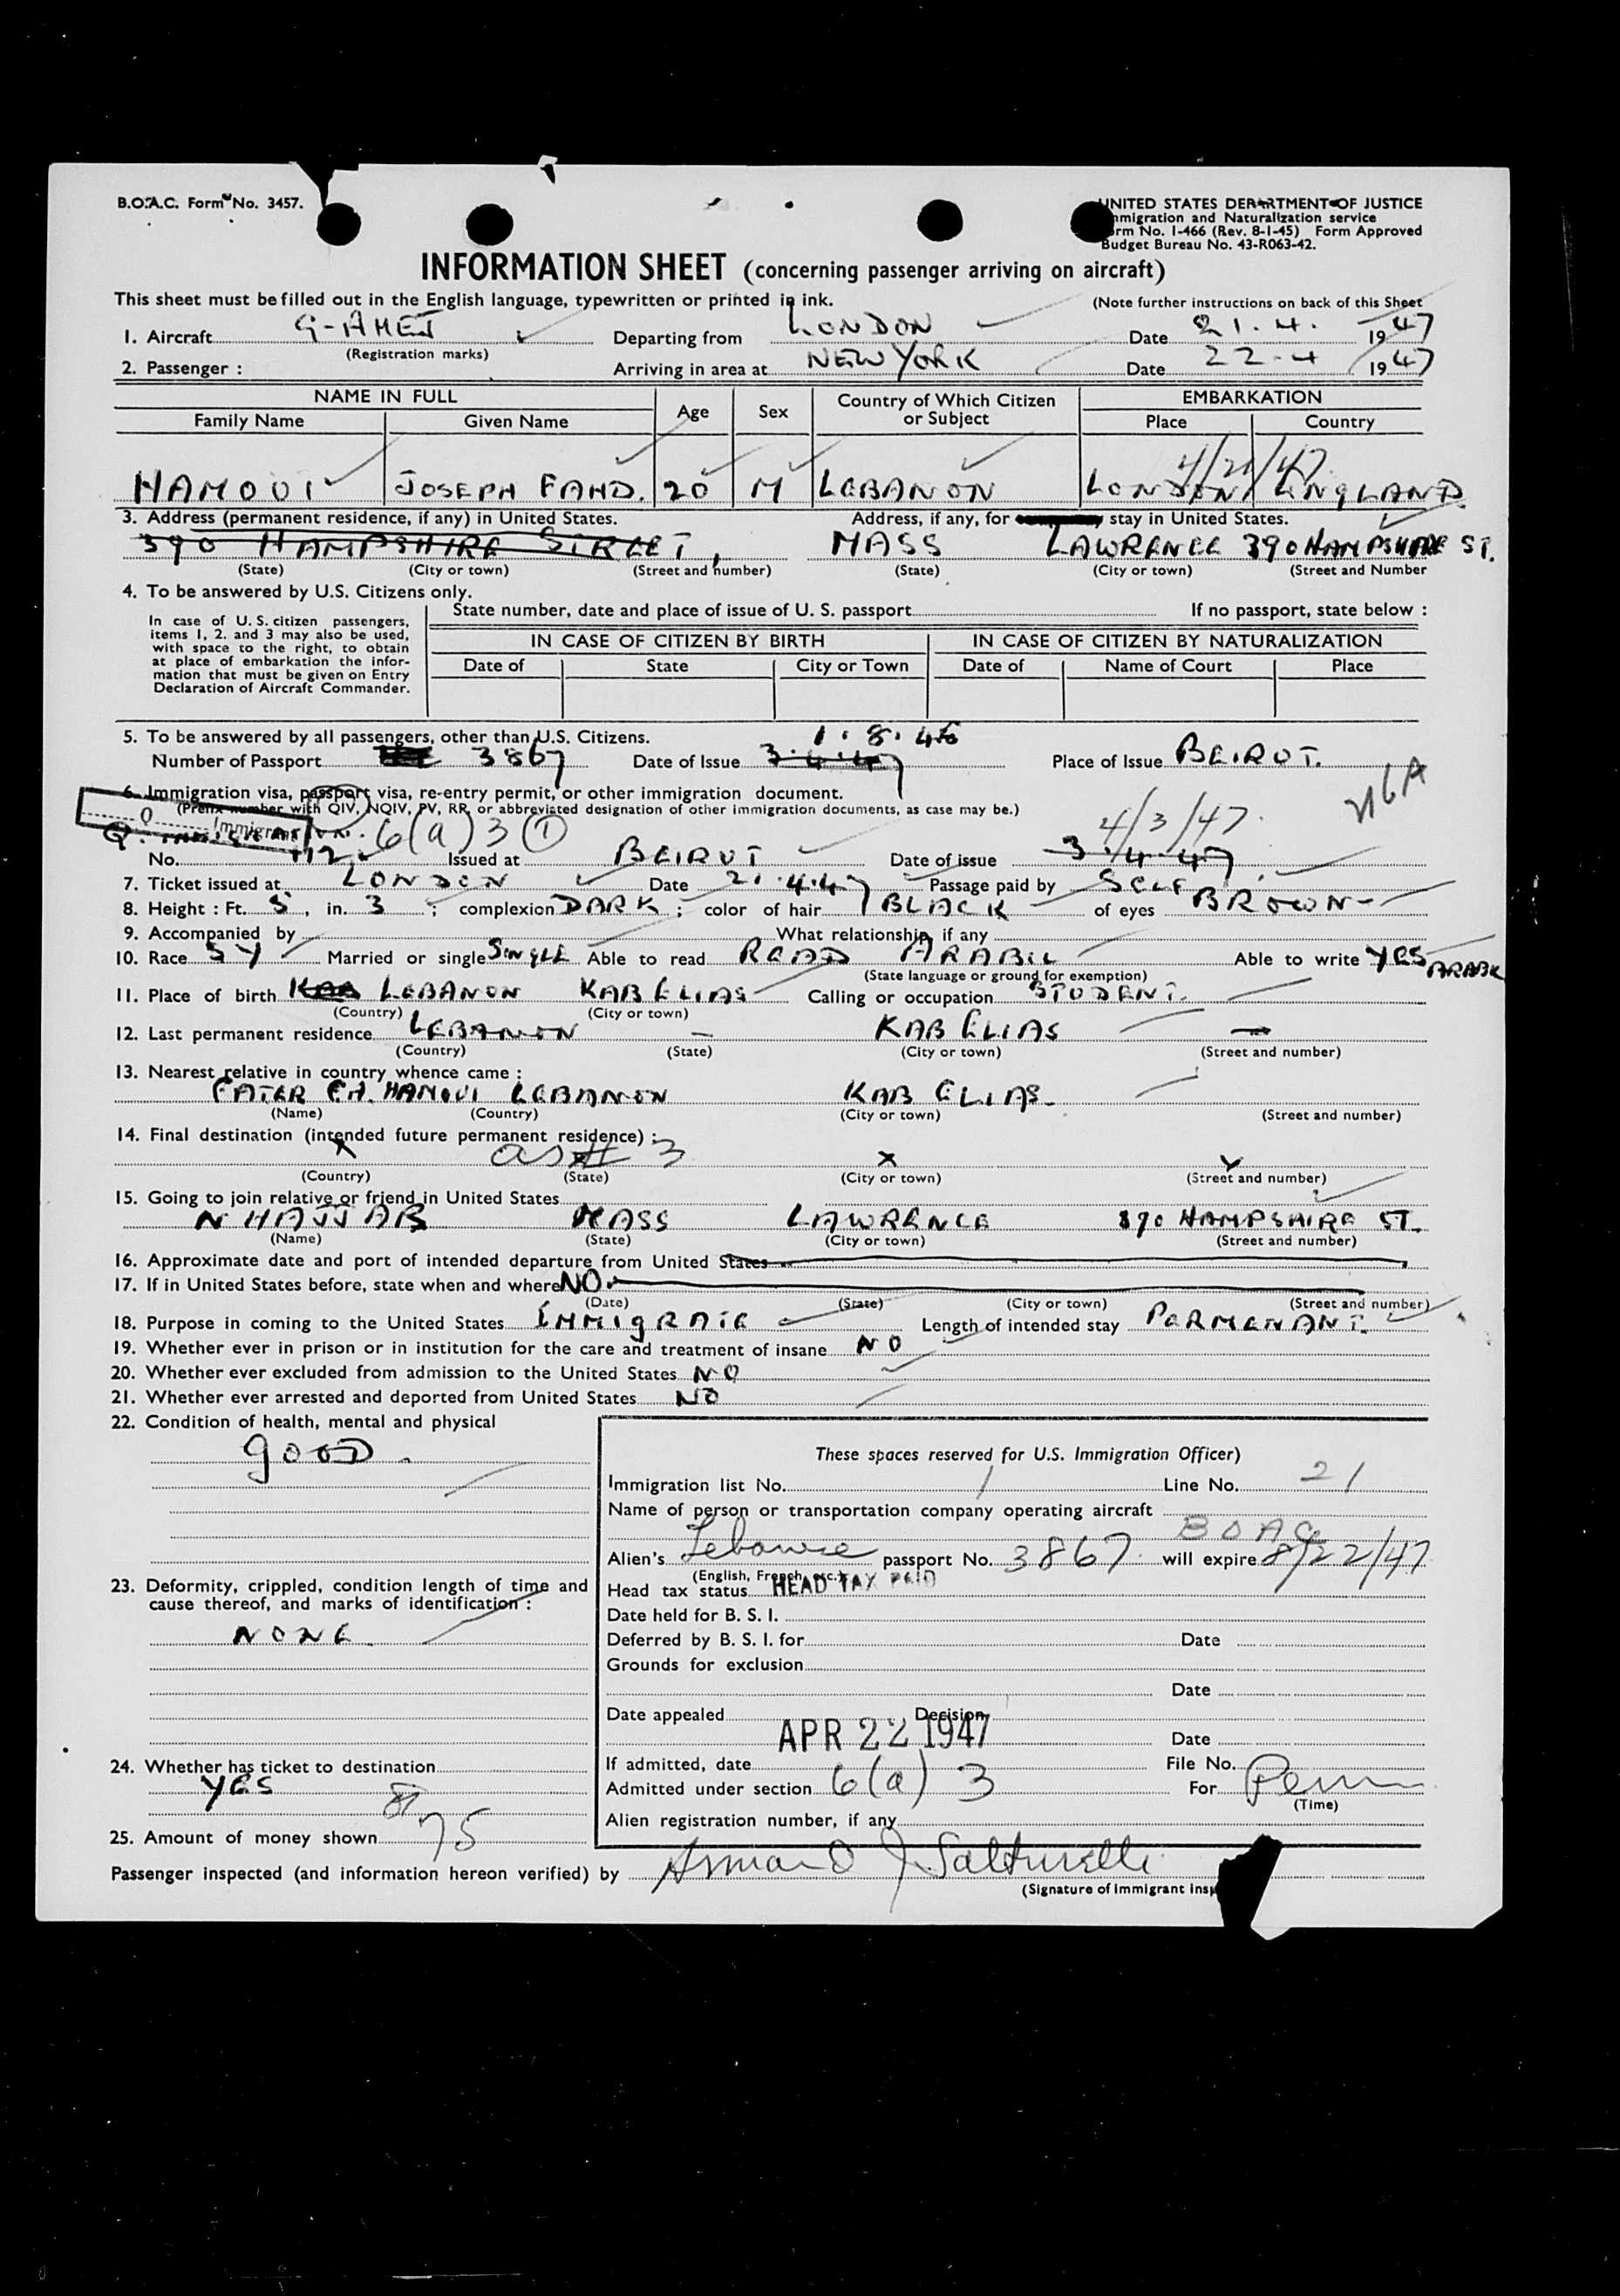 B.O.A.C. Form No. 3457.
UNITED STATES DEPARTMENT OF JUSTICE
Immigration and Naturalization service
Form No. I-466 (Rev. 8-1-45) Form Approved
Budget Bureau No. 43-R063-42.
INFORMATION SHEET (concerning passenger arriving on aircraft)
This sheet must be filled out in the English language, typewritten or printed in ink. (Note further instructions on back of this Sheet
1. Aircraft G-AHEJ Departing from LONDON Date 21.4. 1947
(Registration marks)
2. Passenger : Arriving in area at NEW YORK Date 22-4 1947
NAME IN FULL Age Sex Country of Which Citizen or Subject EMBARKATION
Family Name Given Name Place Country
4/21/47
HAMOUI JOSEPH FAHD. 20 M LEBANON LONDON ENGLAND
3. Address (permanent residence, if any) in United States. Address, if any, for stay in United States.
390 HAMPSHIRE STREET, MASS LAWRENCE 390 HAMPSHIRE ST.
(State) (City or town) (Street and number) (State) (City or town) (Street and Number
4. To be answered by U.S. Citizens only.
In case of U. S. citizen passengers, items 1, 2. and 3 may also be used, with space to the right, to obtain at place of embarkation the information that must be given on Entry Declaration of Aircraft Commander.
State number, date and place of issue of U. S. passport If no passport, state below :
IN CASE OF CITIZEN BY BIRTH IN CASE OF CITIZEN BY NATURALIZATION
Date of State City or Town Date of Name of Court Place
5. To be answered by all passengers, other than U.S. Citizens. 1.8.46
Number of Passport 3867 Date of Issue 3.4.47 Place of Issue BEIRUT.
6. Immigration visa, passport visa, re-entry permit, or other immigration document.
(Prefix number with QIV, NQIV, PV, RP, or abbreviated designation of other immigration documents, as case may be.)
Q Immigrant 6(a)3 (1) 4/3/47.
No. 112 Issued at BEIRUT Date of issue 3.4.47
7. Ticket issued at LONDON Date 21.4.47 Passage paid by SELF
8. Height : Ft. 5, in. 3 ; complexion DARK ; color of hair BLACK of eyes BROWN
9. Accompanied by What relationship, if any
10. Race SY Married or single SINGLE Able to read READ ARABIC Able to write YES ARABIC
(State language or ground for exemption)
11. Place of birth LEBANON KAB ELIAS Calling or occupation STUDENT.
(Country) (City or town)
12. Last permanent residence LEBANON - KAB ELIAS -
(Country) (State) (City or town) (Street and number)
13. Nearest relative in country whence came :
FATER F.H. HAMOUI LEBANON KAB ELIAS.
(Name) (Country) (City or town) (Street and number)
14. Final destination (intended future permanent residence) :
x as # 3 x x
(Country) (State) (City or town) (Street and number)
15. Going to join relative or friend in United States
N HAJJAR MASS LAWRENCE 390 HAMPSHIRE ST.
(Name) (State) (City or town) (Street and number)
16. Approximate date and port of intended departure from United States
17. If in United States before, state when and where NO.
(Date) (State) (City or town) (Street and number)
18. Purpose in coming to the United States IMMIGRATE Length of intended stay PERMENANT.
19. Whether ever in prison or in institution for the care and treatment of insane NO
20. Whether ever excluded from admission to the United States NO
21. Whether ever arrested and deported from United States NO
22. Condition of health, mental and physical
GOOD.
23. Deformity, crippled, condition length of time and cause thereof, and marks of identification :
NONE.
24. Whether has ticket to destination
YES
25. Amount of money shown 75
These spaces reserved for U.S. Immigration Officer)
Immigration list No. 1 Line No. 21
Name of person or transportation company operating aircraft
BOAC
Alien's Lebanese passport No. 3867. will expire 8/22/47
(English, French, etc.)
Head tax status HEAD TAX PAID
Date held for B. S. I.
Deferred by B. S. I. for Date
Grounds for exclusion
Date
Date appealed Decision
APR 22 1947 Date
If admitted, date File No.
Admitted under section 6(a) 3 For Perm
(Time)
Alien registration number, if any
Passenger inspected (and information hereon verified) by Armand J.
(Signature of Immigrant Insp